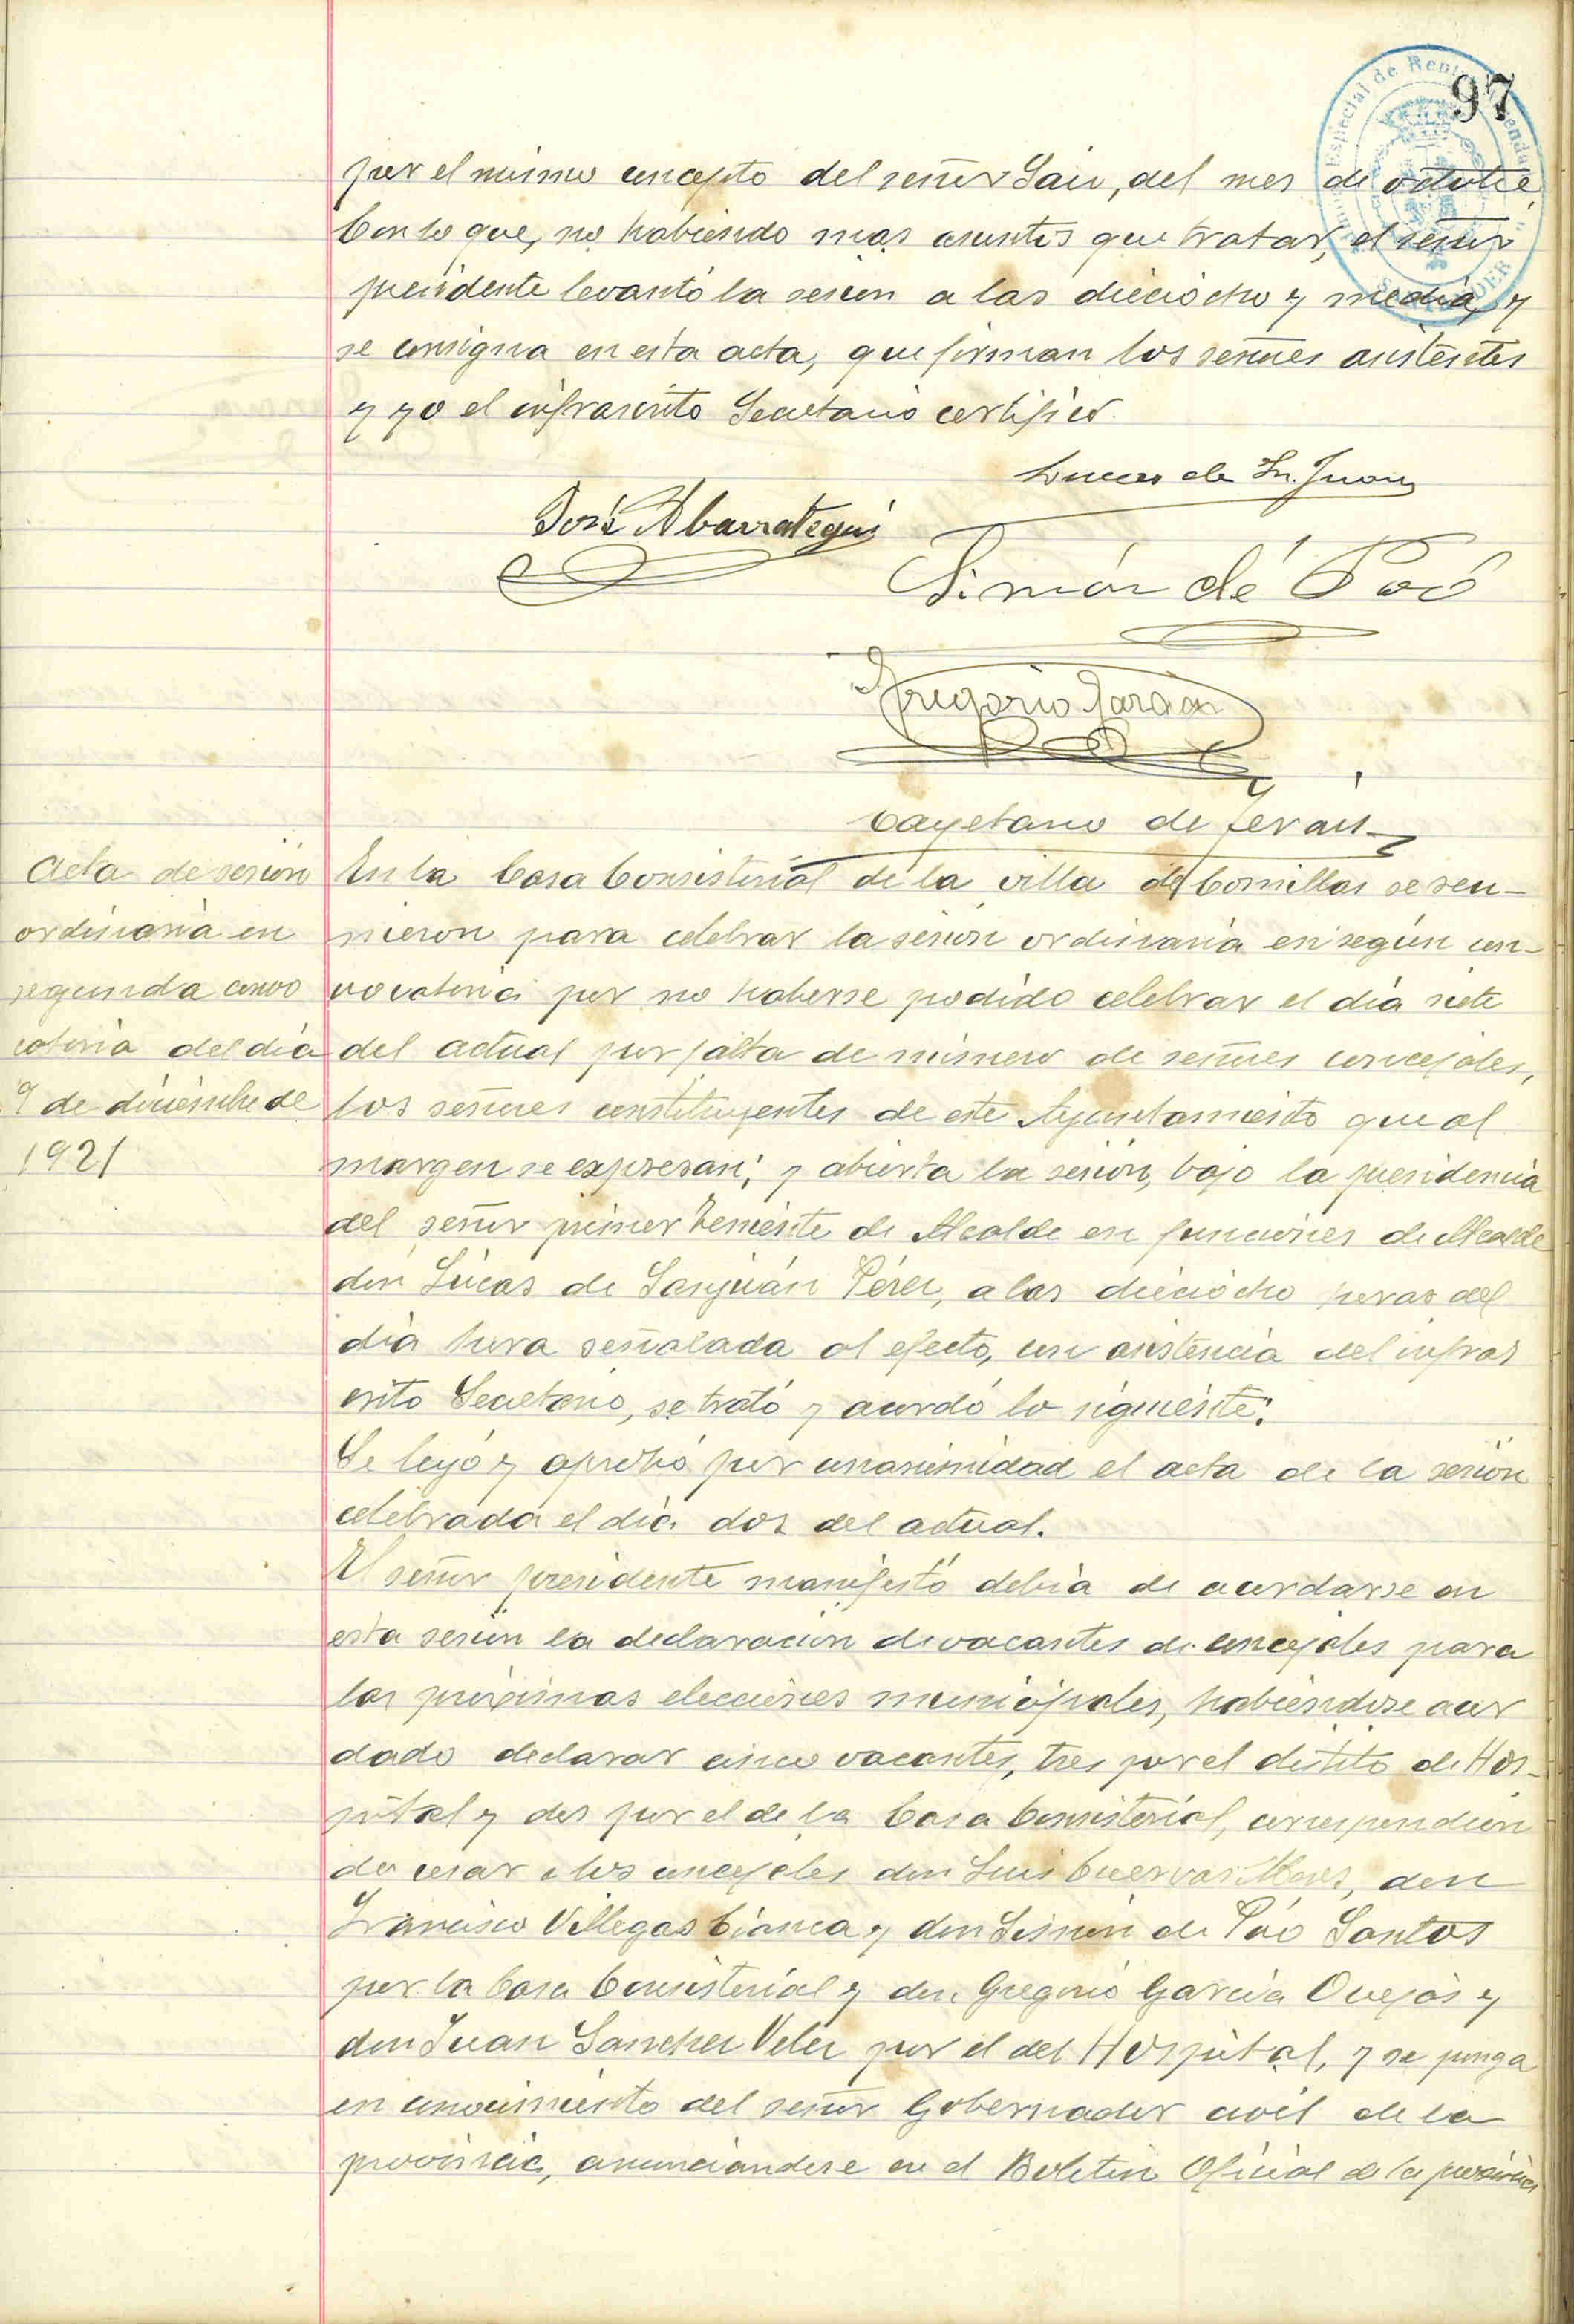 97
por el mismo concepto del señor Sain, del mes de octubre
Con lo que, no habiendo mas asuntos que tratar, el señor
presidente levantó la sesion a las dieciocho y media, y
se consigna en esta acta, que firman los señores asistentes
y yo el infrascrito Secretario certifico.
Lucas de Sn. Juan
José Abarrategui
Simón de Poó
Gregorio Garcia
Cayetano de Terán
Acta de sesión
ordinaria en
segunda convo
catoria del dia
9 de diciembre de
1921
En la Casa Consistorial de la villa de Comillas se reu-
nieron para celebrar la sesión ordinaria en según con-
vocatoria por no haberse podido celebrar el día siete
del actual por falta de número de señores concejales,
los señores constituyentes de este Ayuntamiento que al
margen se expresan; y abierta la sesión, bajo la presidencia
del señor primer Teniente de Alcalde en funciones de Alcalde
don Lucas de Sanjuán Pérez, a las dieciocho horas del
día hora señalada al efecto, con asistencia del infras
crito Secretario, se trató y acordó lo siguiente:
Se leyó y aprobó por unanimidad el acta de la sesión
celebrada el día dos del actual.
El señor presidente manifestó debia de acordarse en
esta sesión la declaración de vacantes de concejales para
las próximas elecciones municipales, habiendose acor
dado declarar cinco vacantes, tres por el distito de Hos-
pital y dos por el de la Casa Consistorial, correspondien
do cesar a los concejales don Luis Cuervas Mons, don
Francisco Villegas Cianca y don Simón de Póo Santos
por la Casa Consistorial y don Gregorio García Ovejas y
don Juan Sanchez Velez por el del Hospital, y se ponga
en conocimiento del señor Gobernador civil de la
provincia, anunciandose en el Boletin Oficial de la provincia